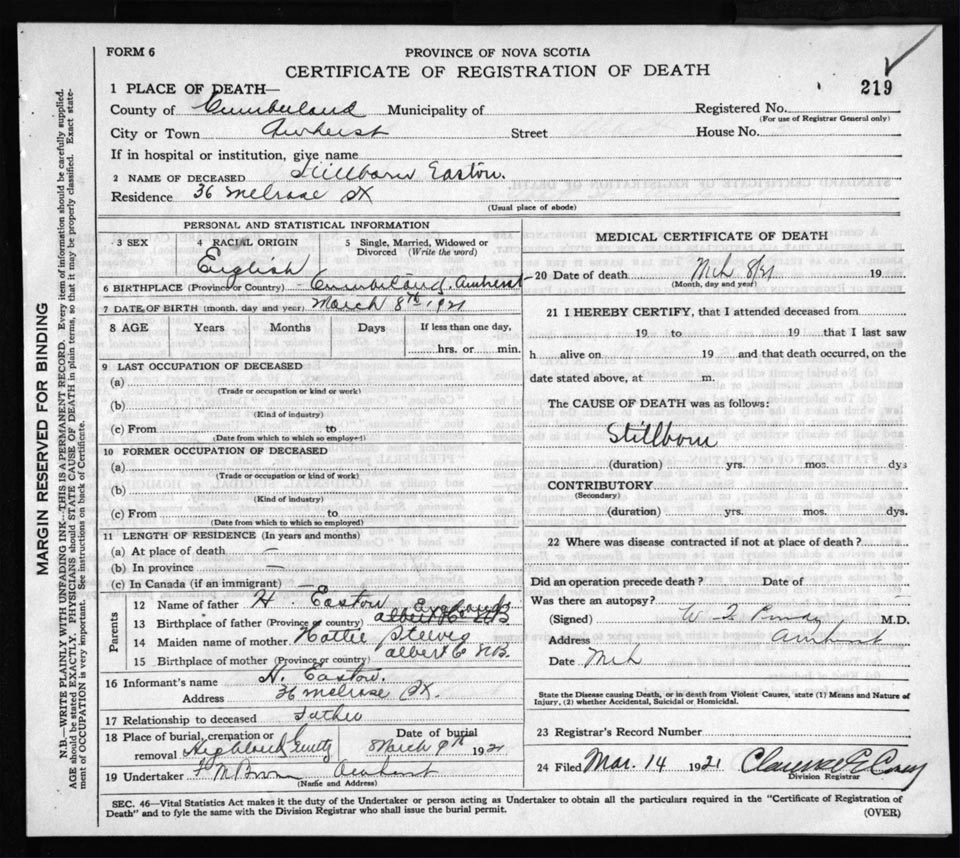 FORM 6
PROVINCE OF NOVA SCOTIA
CERTIFICATE OF REGISTRATION OF DEATH
219
1 PLACE OF DEATH—
County of Cumberland Municipality of Registered No.
(For use of Registrar General only)
City or Town Amherst Street House No.
If in hospital or institution, give name
2 NAME OF DECEASED Stillborn Easton.
Residence 36 Melrose St
(Usual place of abode)
PERSONAL AND STATISTICAL INFORMATION
3 SEX 4 RACIAL ORIGIN 5 Single, Married, Widowed or Divorced (Write the word)
English
6 BIRTHPLACE (Province or Country) Cumberland. Amherst
7 DATE OF BIRTH (month, day and year) March 8th 1921
8 AGE Years Months Days If less than one day,
hrs. or min.
9 LAST OCCUPATION OF DECEASED
(a)
(Trade or occupation or kind or work)
(b)
(Kind of industry)
(c) From to
(Date from which to which so employed)
10 FORMER OCCUPATION OF DECEASED
(a)
(Trade or occupation or kind or work)
(b)
(Kind of industry)
(c) From to
(Date from which to which so employed)
11 LENGTH OF RESIDENCE (In years and months)
(a) At place of death —
(b) In province —
(c) In Canada (if an immigrant) —
Parents
12 Name of father H. Easton
England
13 Birthplace of father (Province or country) Albert Co NB
14 Maiden name of mother Hattie Steeves
15 Birthplace of mother (Province or country) Albert C NB.
16 Informant's name H. Easton.
Address 36 Melrose St.
17 Relationship to deceased Father
18 Place of burial, cremation or removal Highland
Date of burial March 9th 1921
19 Undertaker F M Brown Amherst
(Name and Address)
MEDICAL CERTIFICATE OF DEATH
20 Date of death Mch 8/21 19
(Month, day and year)
21 I HEREBY CERTIFY, that I attended deceased from
19 to 19 that I last saw
h alive on 19 and that death occurred, on the
date stated above, at m.
The CAUSE OF DEATH was as follows:
Stillborn
(duration) yrs. mos. dys
CONTRIBUTORY
(Secondary)
(duration) yrs. mos. dys.
22 Where was disease contracted if not at place of death?
Did an operation precede death? Date of
Was there an autopsy?
(Signed) M.D.
Address Amherst
Date Mch
State the Disease causing Death, or in death from Violent Causes, state (1) Means and Nature of
Injury, (2) whether Accidental, Suicidal or Homicidal.
23 Registrar's Record Number
24 Filed Mar. 14 1921 Clarence E Casey
Division Registrar
SEC. 46—Vital Statistics Act makes it the duty of the Undertaker or person acting as Undertaker to obtain all the particulars required in the "Certificate of Registration of
Death" and to fyle the same with the Division Registrar who shall issue the burial permit.
(OVER)
MARGIN RESERVED FOR BINDING
N.B.—WRITE PLAINLY WITH UNFADING INK—THIS IS A PERMANENT RECORD. Every item of information should be carefully supplied.
AGE should be stated EXACTLY. PHYSICIANS should STATE CAUSE OF DEATH in plain terms, so that it may be properly classified. Exact state-
ment of OCCUPATION is very important. See instructions on back of Certificate.